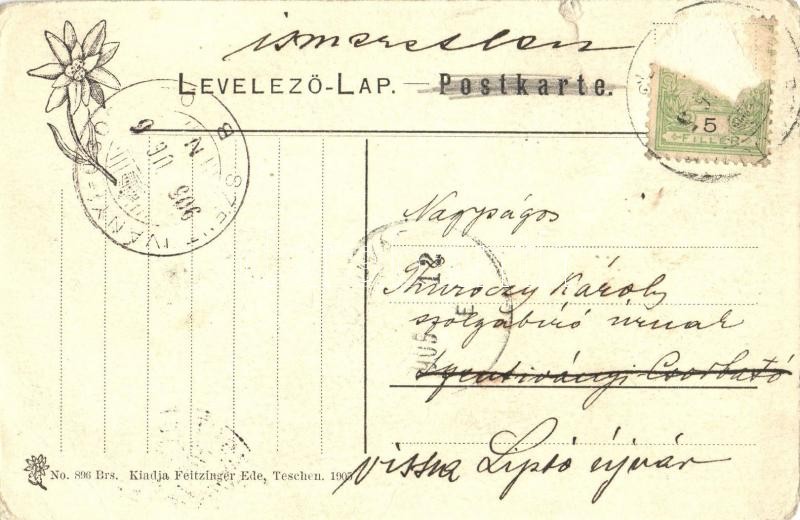 ismeretlen
LEVELEZŐ-LAP. — Postkarte.
5
FILLÉR
SZENT IVÁNYI-CSO
905
Nagyságos
Thuroczy Károly
szolgabíró úrnak
Szentiványi Csorbató
vissza Liptó újvár
12
905
No. 896 Brs. Kiadja Feitzinger Ede, Teschen. 190